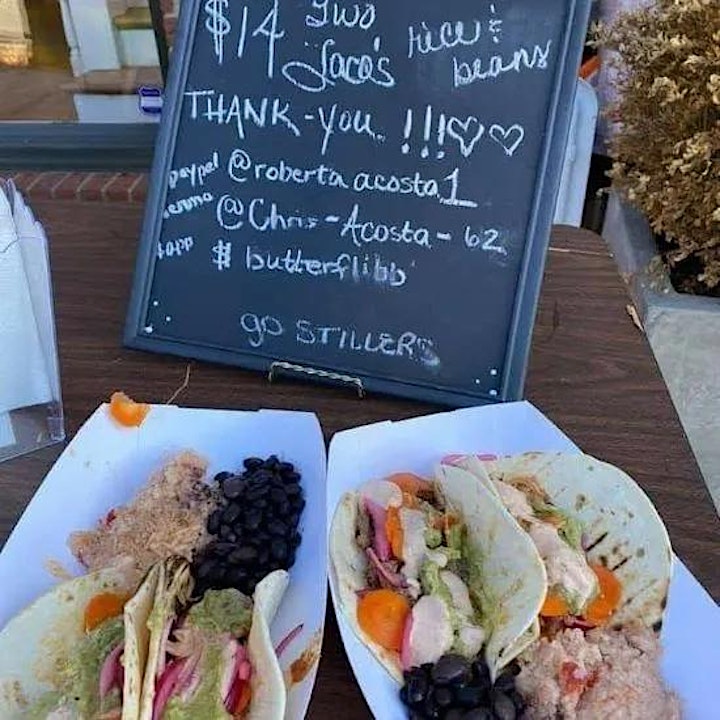 $14 Two Taco's rice & beans
THANK-you. !!!♡♡
paypal @robertaacosta1
venmo @Chris-Acosta-62
$app $butterflibb
go STILLERS